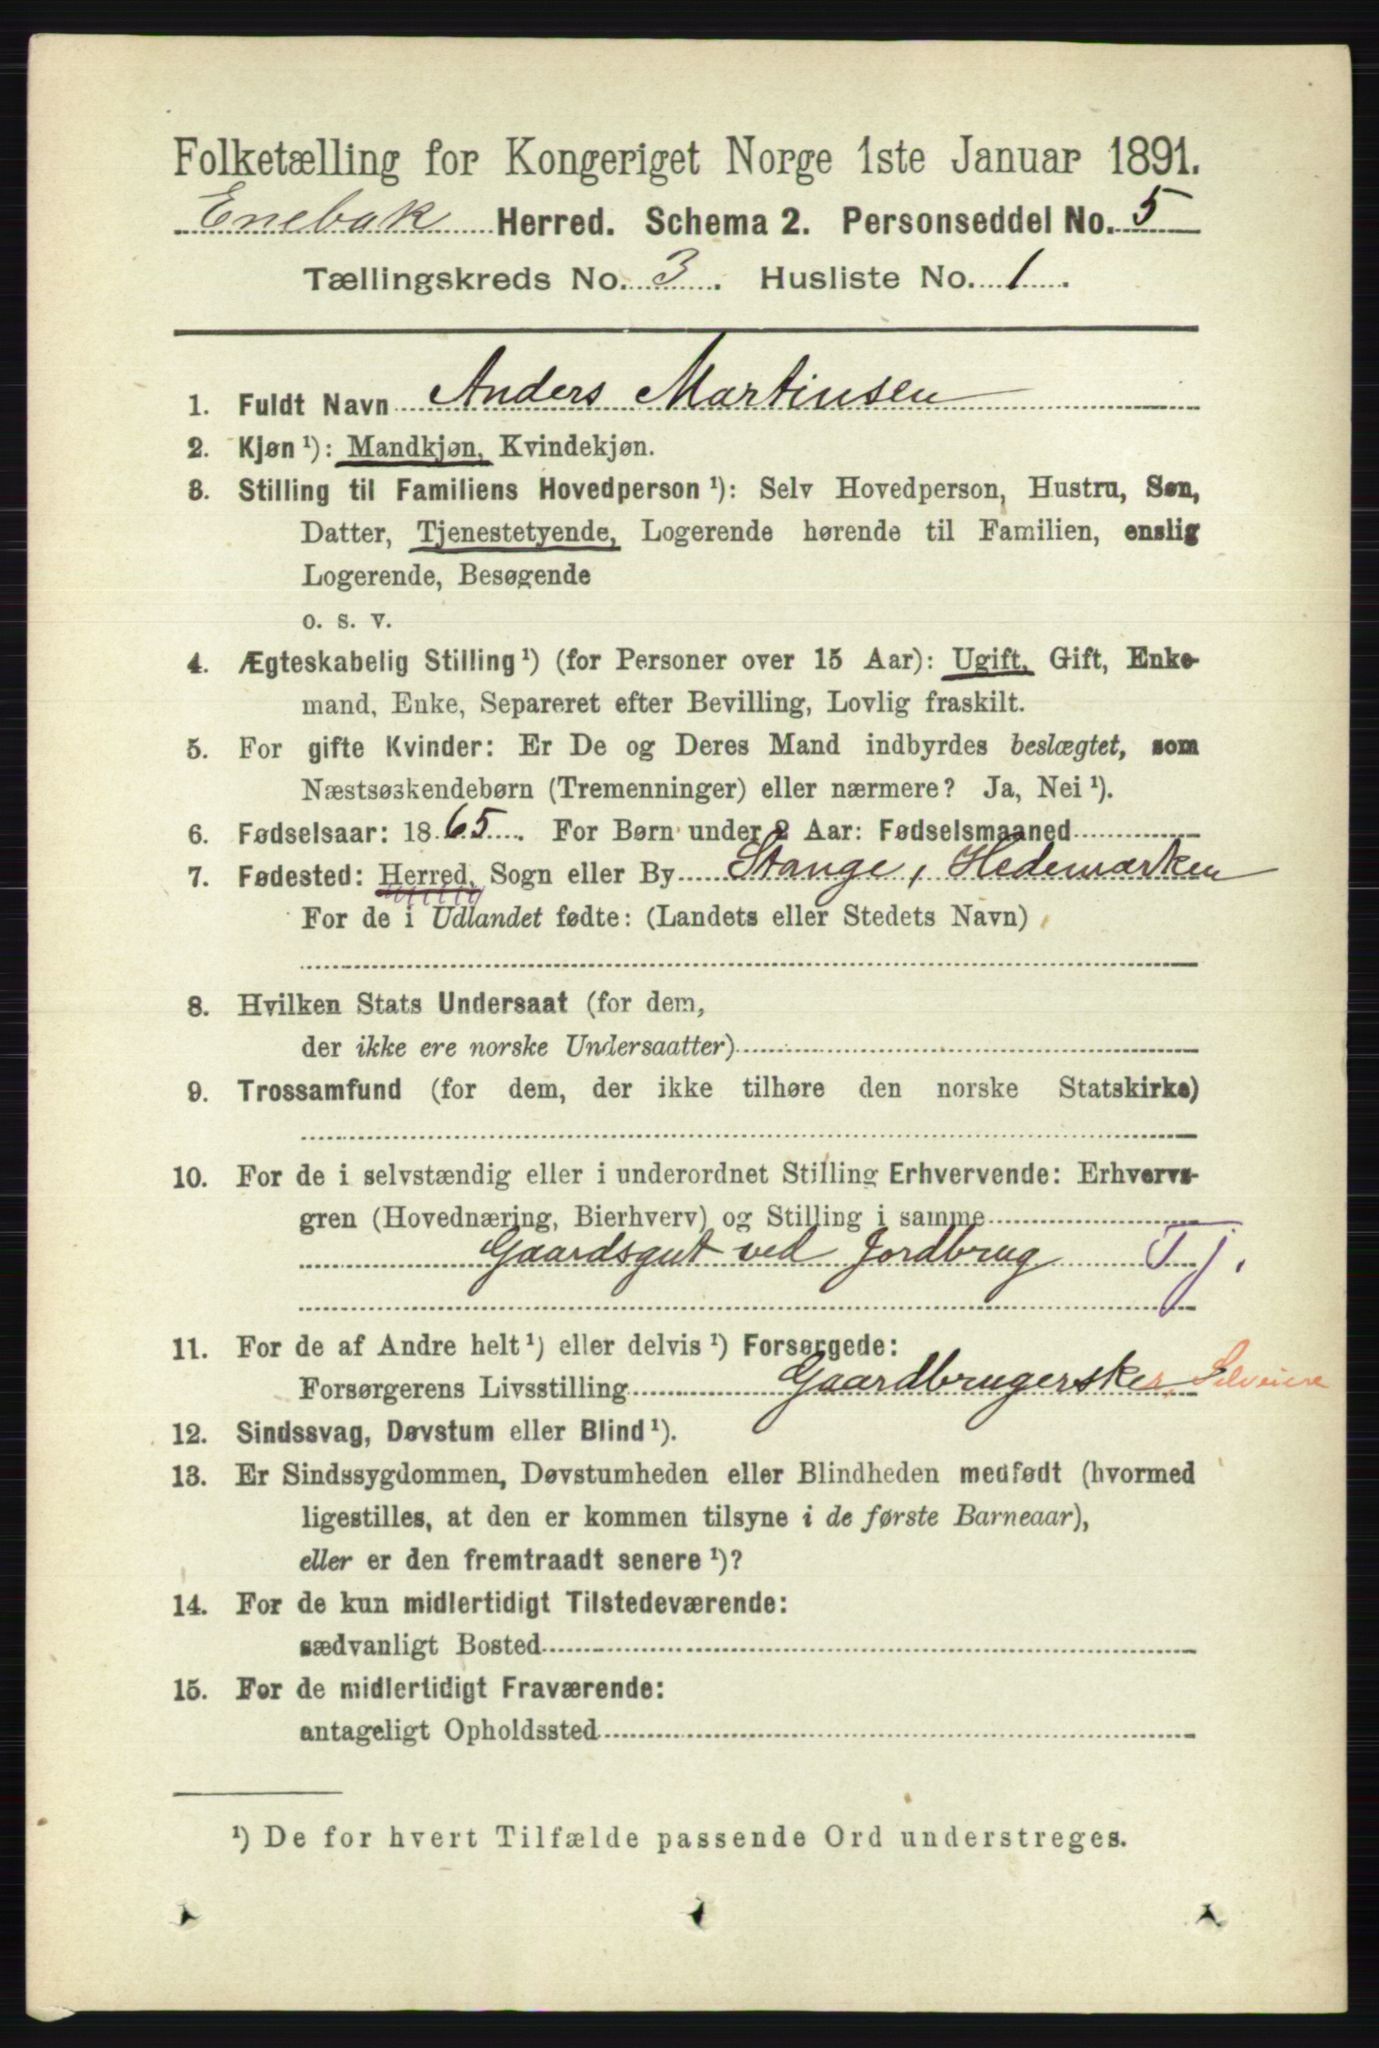 Folketælling for Kongeriget Norge 1ste Januar 1891.
Enebak Herred. Schema 2. Personseddel No. 5
Tællingskreds No. 3. Husliste No. 1.
1. Fuldt Navn Anders Martinsen
2. Kjøn ¹): Mandkjøn, Kvindekjøn.
3. Stilling til Familiens Hovedperson ¹): Selv Hovedperson, Hustru, Søn,
Datter, Tjenestetyende, Logerende hørende til Familien, enslig
Logerende, Besøgende
o. s. v.
4. Ægteskabelig Stilling ¹) (for Personer over 15 Aar): Ugift, Gift, Enke-
mand, Enke, Separeret efter Bevilling, Lovlig fraskilt.
5. For gifte Kvinder: Er De og Deres Mand indbyrdes beslægtet, som
Næstsøskendebørn (Tremenninger) eller nærmere? Ja, Nei ¹).
6. Fødselsaar: 1865. For Børn under 2 Aar: Fødselsmaaned
7. Fødested: Herred, Sogn eller By Stange, Hedemarken
For de i Udlandet fødte: (Landets eller Stedets Navn)
8. Hvilken Stats Undersaat (for dem,
der ikke ere norske Undersaatter)
9. Trossamfund (for dem, der ikke tilhøre den norske Statskirke)
10. For de i selvstændig eller i underordnet Stilling Erhvervende: Erhvervs-
gren (Hovednæring, Bierhverv) og Stilling i samme
Gaardsgut ved Jordbrug Tj.
11. For de af Andre helt ¹) eller delvis ¹) Forsørgede:
Forsørgerens Livsstilling Gaardbrugerske, Selveiere
12. Sindssvag, Døvstum eller Blind ¹).
13. Er Sindssygdommen, Døvstumheden eller Blindheden medfødt (hvormed
ligestilles, at den er kommen tilsyne i de første Barneaar),
eller er den fremtraadt senere ¹)?
14. For de kun midlertidigt Tilstedeværende:
sædvanligt Bosted
15. For de midlertidigt Fraværende:
antageligt Opholdssted
¹) De for hvert Tilfælde passende Ord understreges.